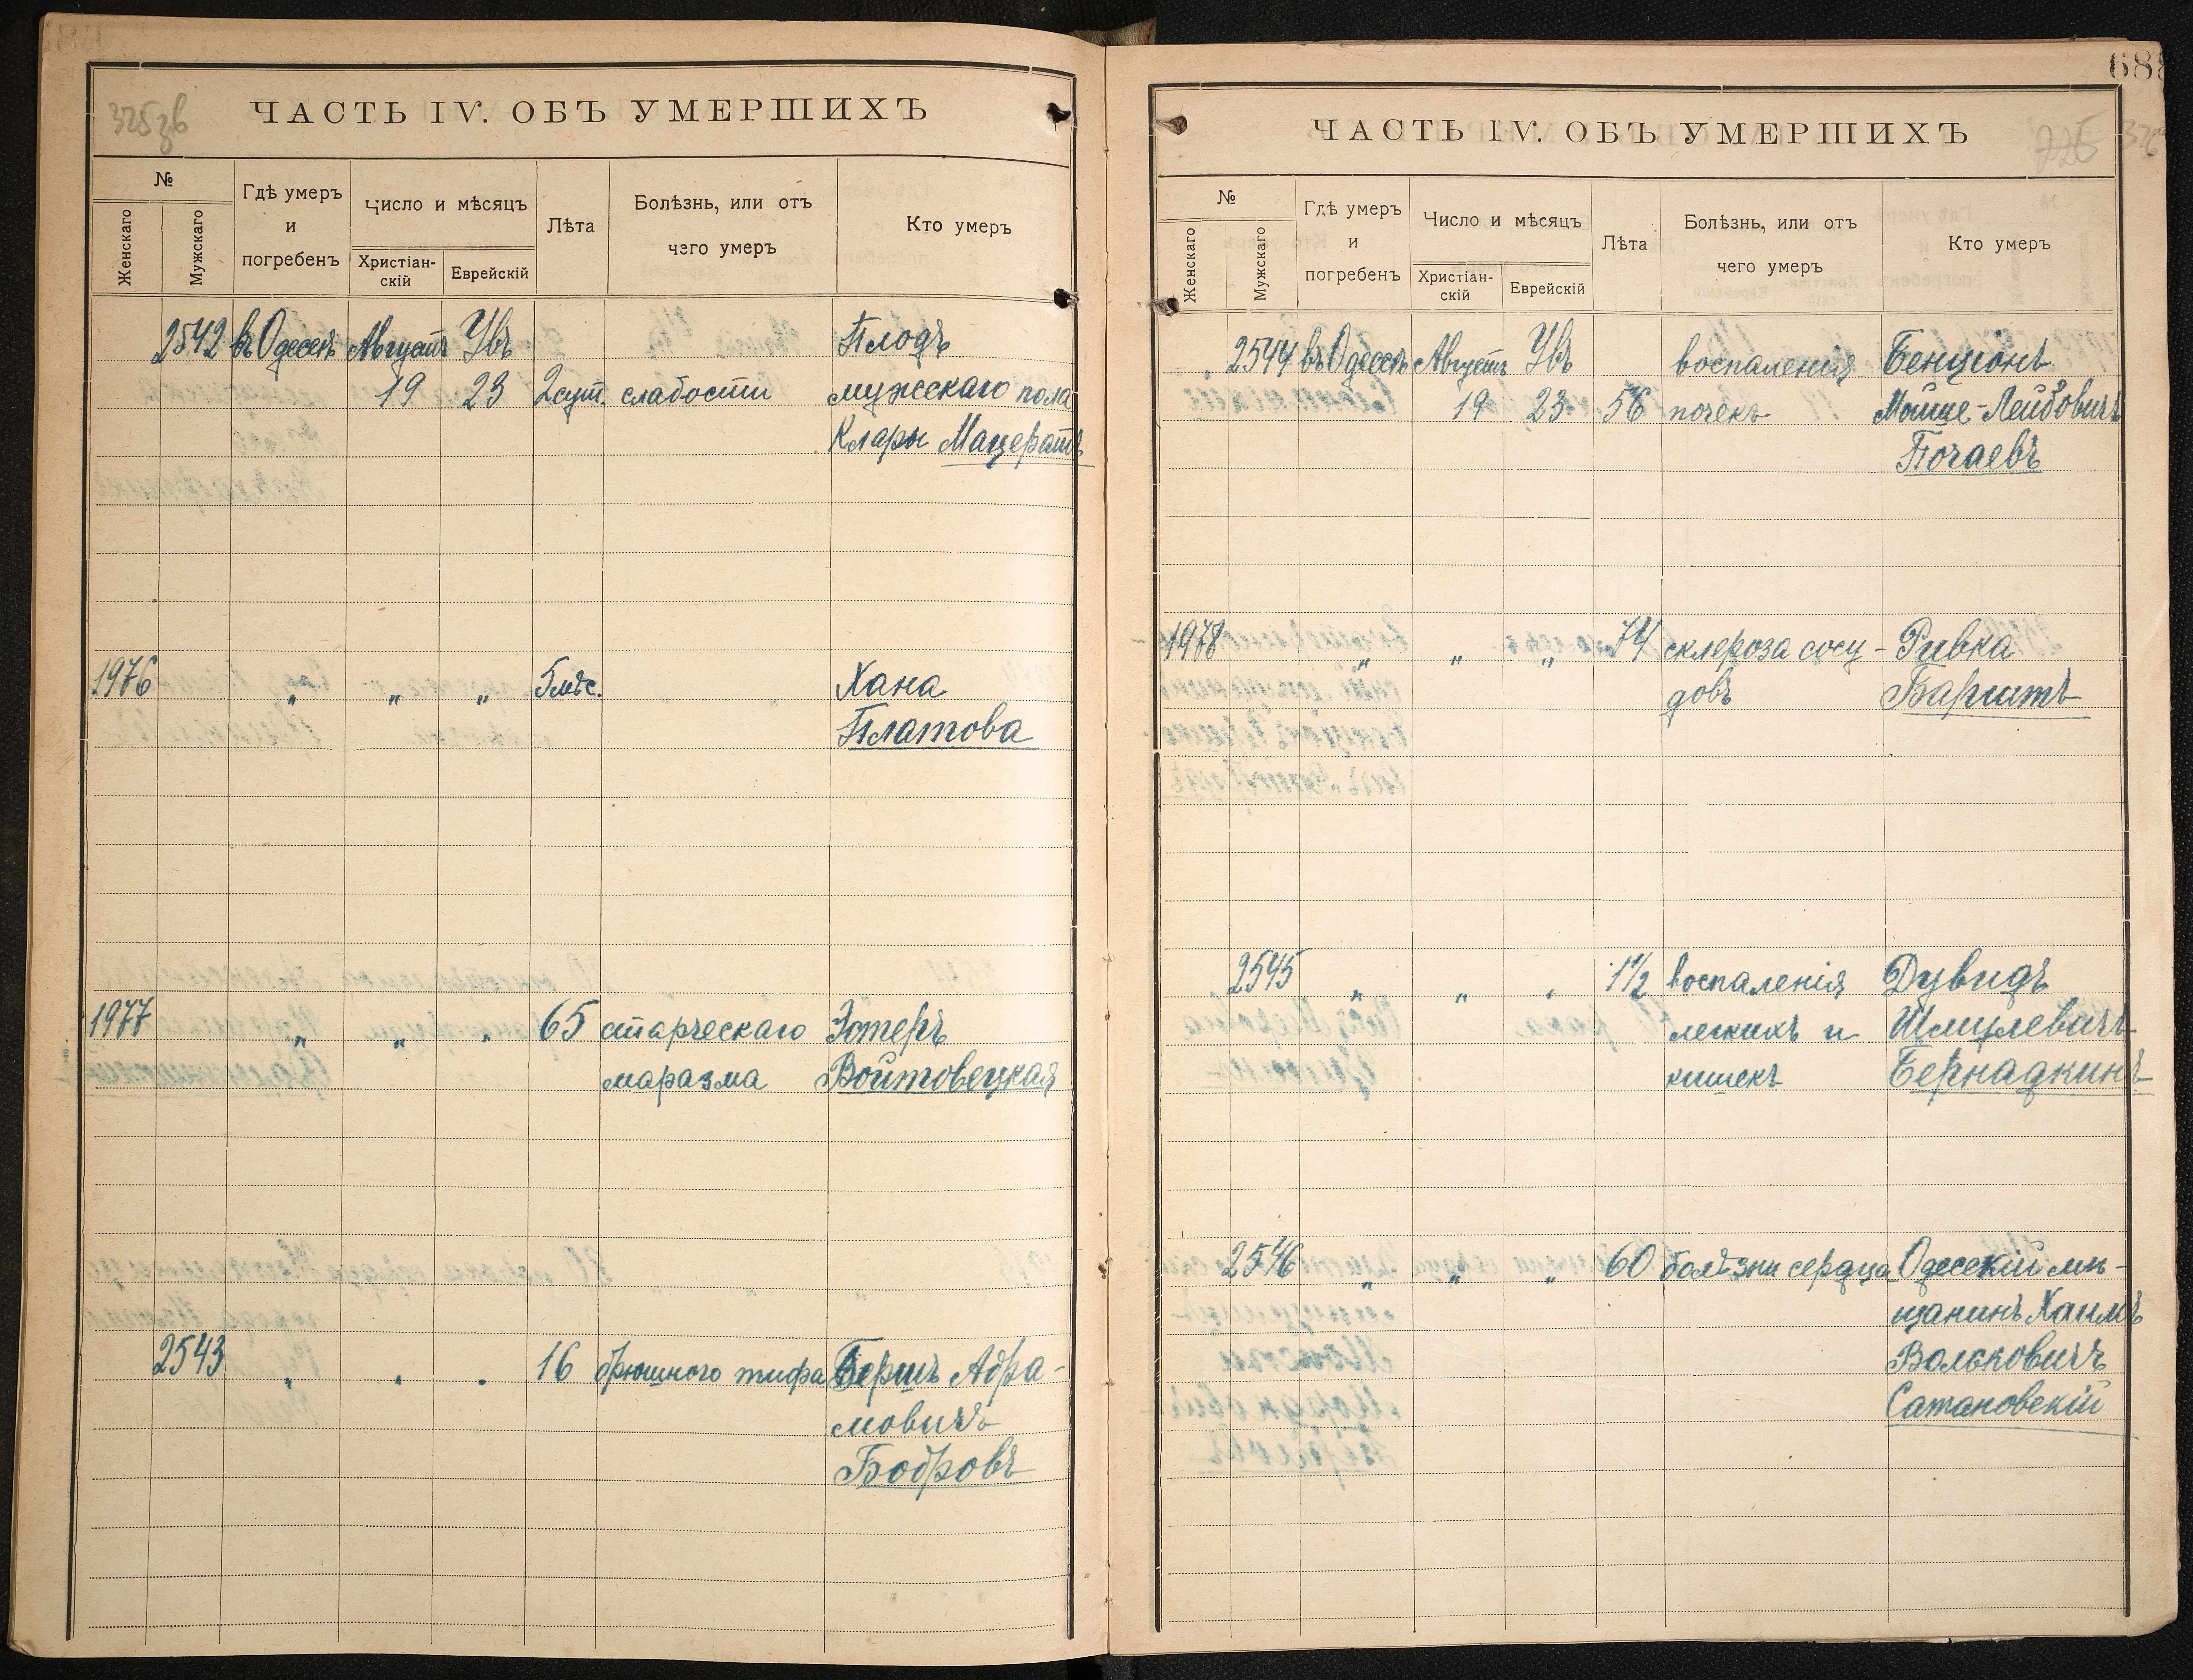 325зв
ЧАСТЬ IV. ОБЪ УМЕРШИХЪ
№
Женскаго
Мужскаго
Гдѣ умеръ
и
погребенъ
Число и мѣсяцъ
Христіан-
скій
Еврейскій
Лѣта
Болѣзнь, или отъ
чего умеръ
Кто умеръ
2542 въ Одессѣ Августъ Увъ Плодъ
19 23 2 сут. слабости мужескаго пола
Клары Мацератъ
1976 " " " 5 мѣс. Хана
Платова
1977 " " " 65 старческаго Эстеръ
маразма Войтовецкая
2543 " " " 16 брюшного тифа Бершъ Абра-
мовичъ
Бобровъ
688
ЧАСТЬ IV. ОБЪ УМЕРШИХЪ
№
Женскаго
Мужскаго
Гдѣ умеръ
и
погребенъ
Число и мѣсяцъ
Христіан-
скій
Еврейскій
Лѣта
Болѣзнь, или отъ
чего умеръ
Кто умеръ
2544 въ Одессѣ Августъ Увъ воспаленія Бенціонъ
19 23 56 почекъ Мойше-Лейбовичъ
Почаевъ
1978 " " " 74 склероза сосу- Ривка
довъ Баргитъ
2545 " " " 1½ воспаленія Дувидъ
легкихъ и Шмулевичъ
кишекъ Бернадкинъ
2546 " " " 60 болѣзни сердца Одесскій мѣ-
щанинъ Хаимъ
Вольковичъ
Сатановскій